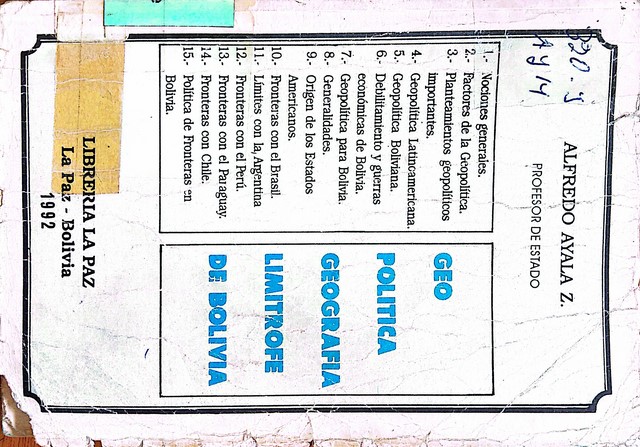 320.9
AY14
ALFREDO AYALA Z.
PROFESOR DE ESTADO
1.- Nociones generales.
2.- Factores de la Geopolítica.
3.- Planteamientos geopolíticos
importantes.
4.- Geopolítica Latinoamericana.
5.- Geopolítica Boliviana.
6.- Debilitamiento y guerras
económicas de Bolivia.
7.- Geopolítica para Bolivia.
8.- Generalidades.
9.- Origen de los Estados
Americanos.
10.- Fronteras con el Brasil.
11.- Límites con la Argentina
12.- Fronteras con el Perú.
13.- Fronteras con el Paraguay.
14.- Fronteras con Chile.
15.- Política de Fronteras en
Bolivia.
GEO
POLITICA
GEOGRAFIA
LIMITROFE
DE BOLIVIA
LIBRERIA LA PAZ
La Paz - Bolivia
1992